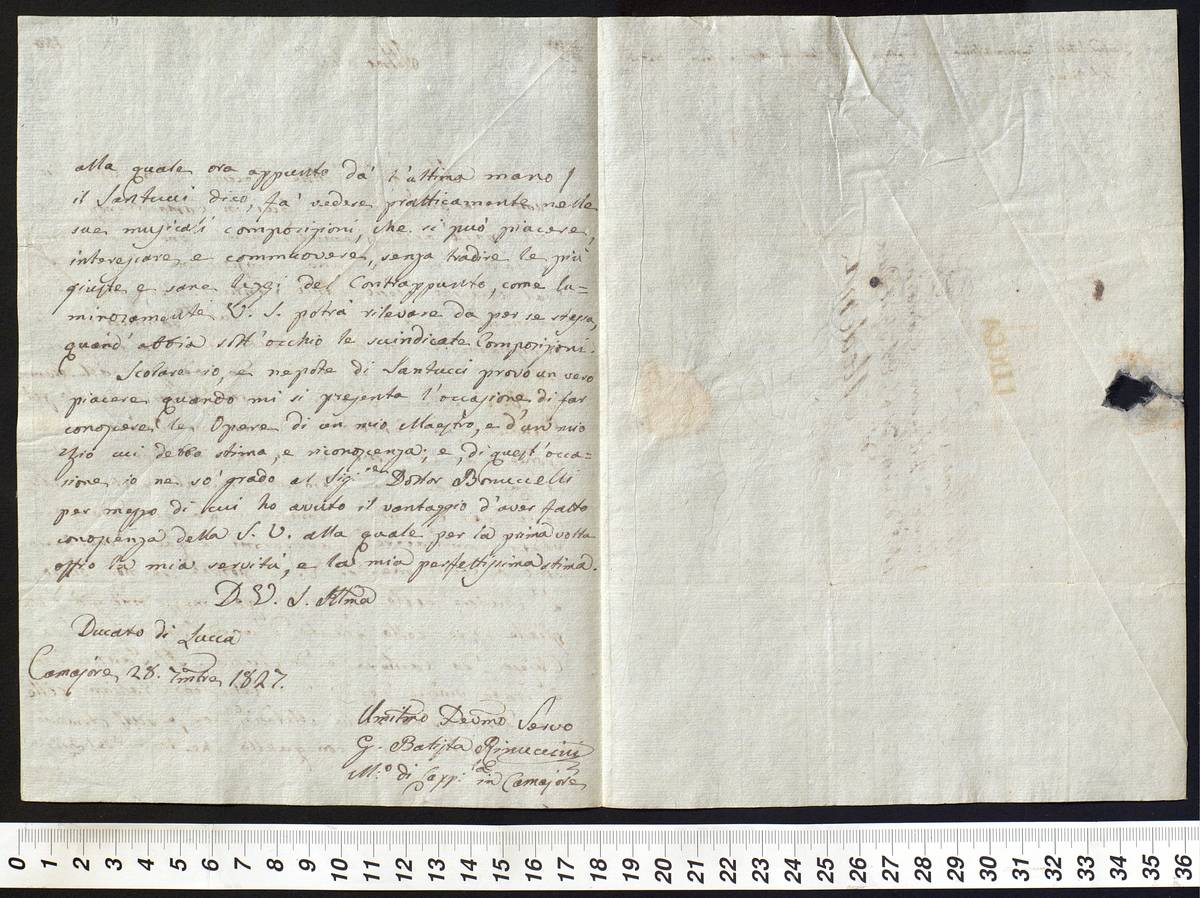 alla quale ora appunto dà l'ultima mano /
il Santucci dico, fà vedere pratticamente nelle
sue musicali composizioni, che si può piacere,
interessare e commuovere, senza tradire le più
giuste e sane leggi del Contrappunto, come lu=
minosamente V. S. potrà rilevare da per se stessa,
quand' abbia sott' occhio le suindicate Composizioni.
Scolare io, e nepote di Santucci provo un vero
piacere quando mi si presenta l'occasione di far
conoscere le Opere di un mio Maestro, e d'un mio
Zio cui debbo stima, e riconoscenza; e, di quest' occa=
sione io ne sò grado al Sig.re Dottor Bonuccelli
per mezzo di cui ho avuto il vantaggio d'aver fatto
conoscenza della S. V. alla quale per la prima volta
offro la mia servitù, e la mia perfettissima stima.
D. V. S. Illma
Ducato di Lucca
Camajore 28. 7mbre 1827.
Umilmo Devmo Servo
G. Batista Rinuccini
M.o di Capp.la in Camajore
LUCCA
0 1 2 3 4 5 6 7 8 9 10 11 12 13 14 15 16 17 18 19 20 21 22 23 24 25 26 27 28 29 30 31 32 33 34 35 36